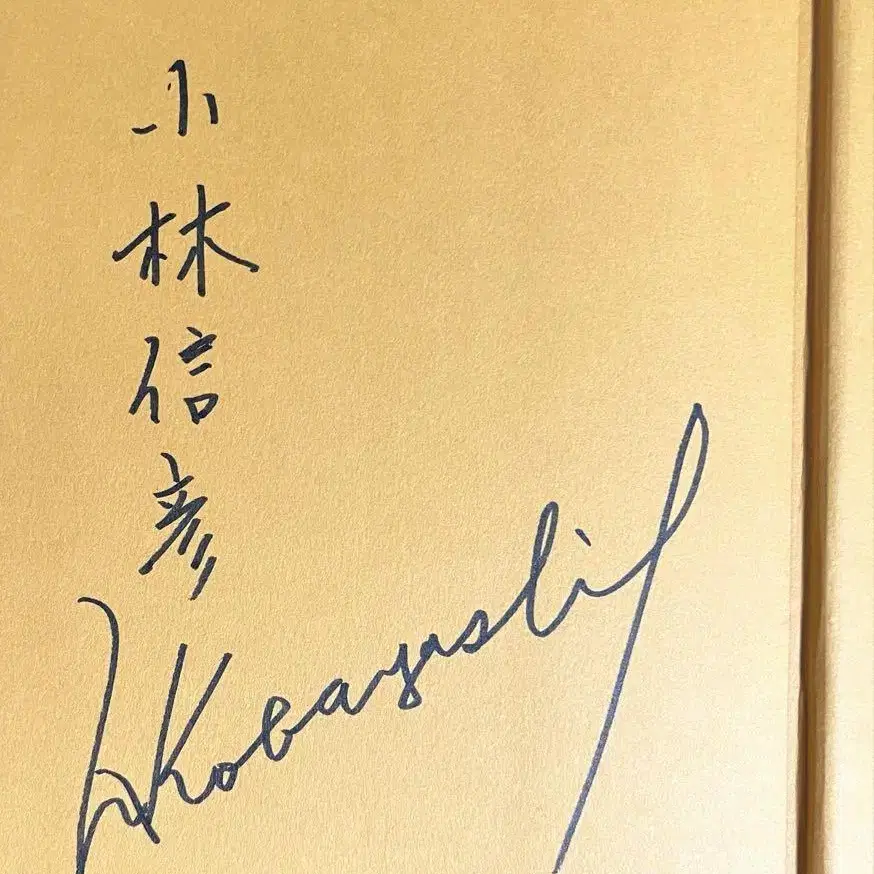 小林信彦
N Kobayashi